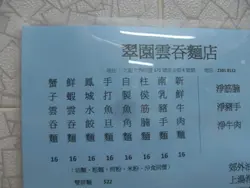 翠園雲吞麵店
新鮮牛肉麵
南乳豬手麵
柱侯筋腩麵
自製魚角麵
手打魚旦麵
鳳城水餃麵
鮮蝦雲吞麵
蟹子雲吞麵
16 16 16 16 16 16 16 16
雙拼麵 $22
淨筋腩
淨豬手
淨牛肉
郊外
上湯